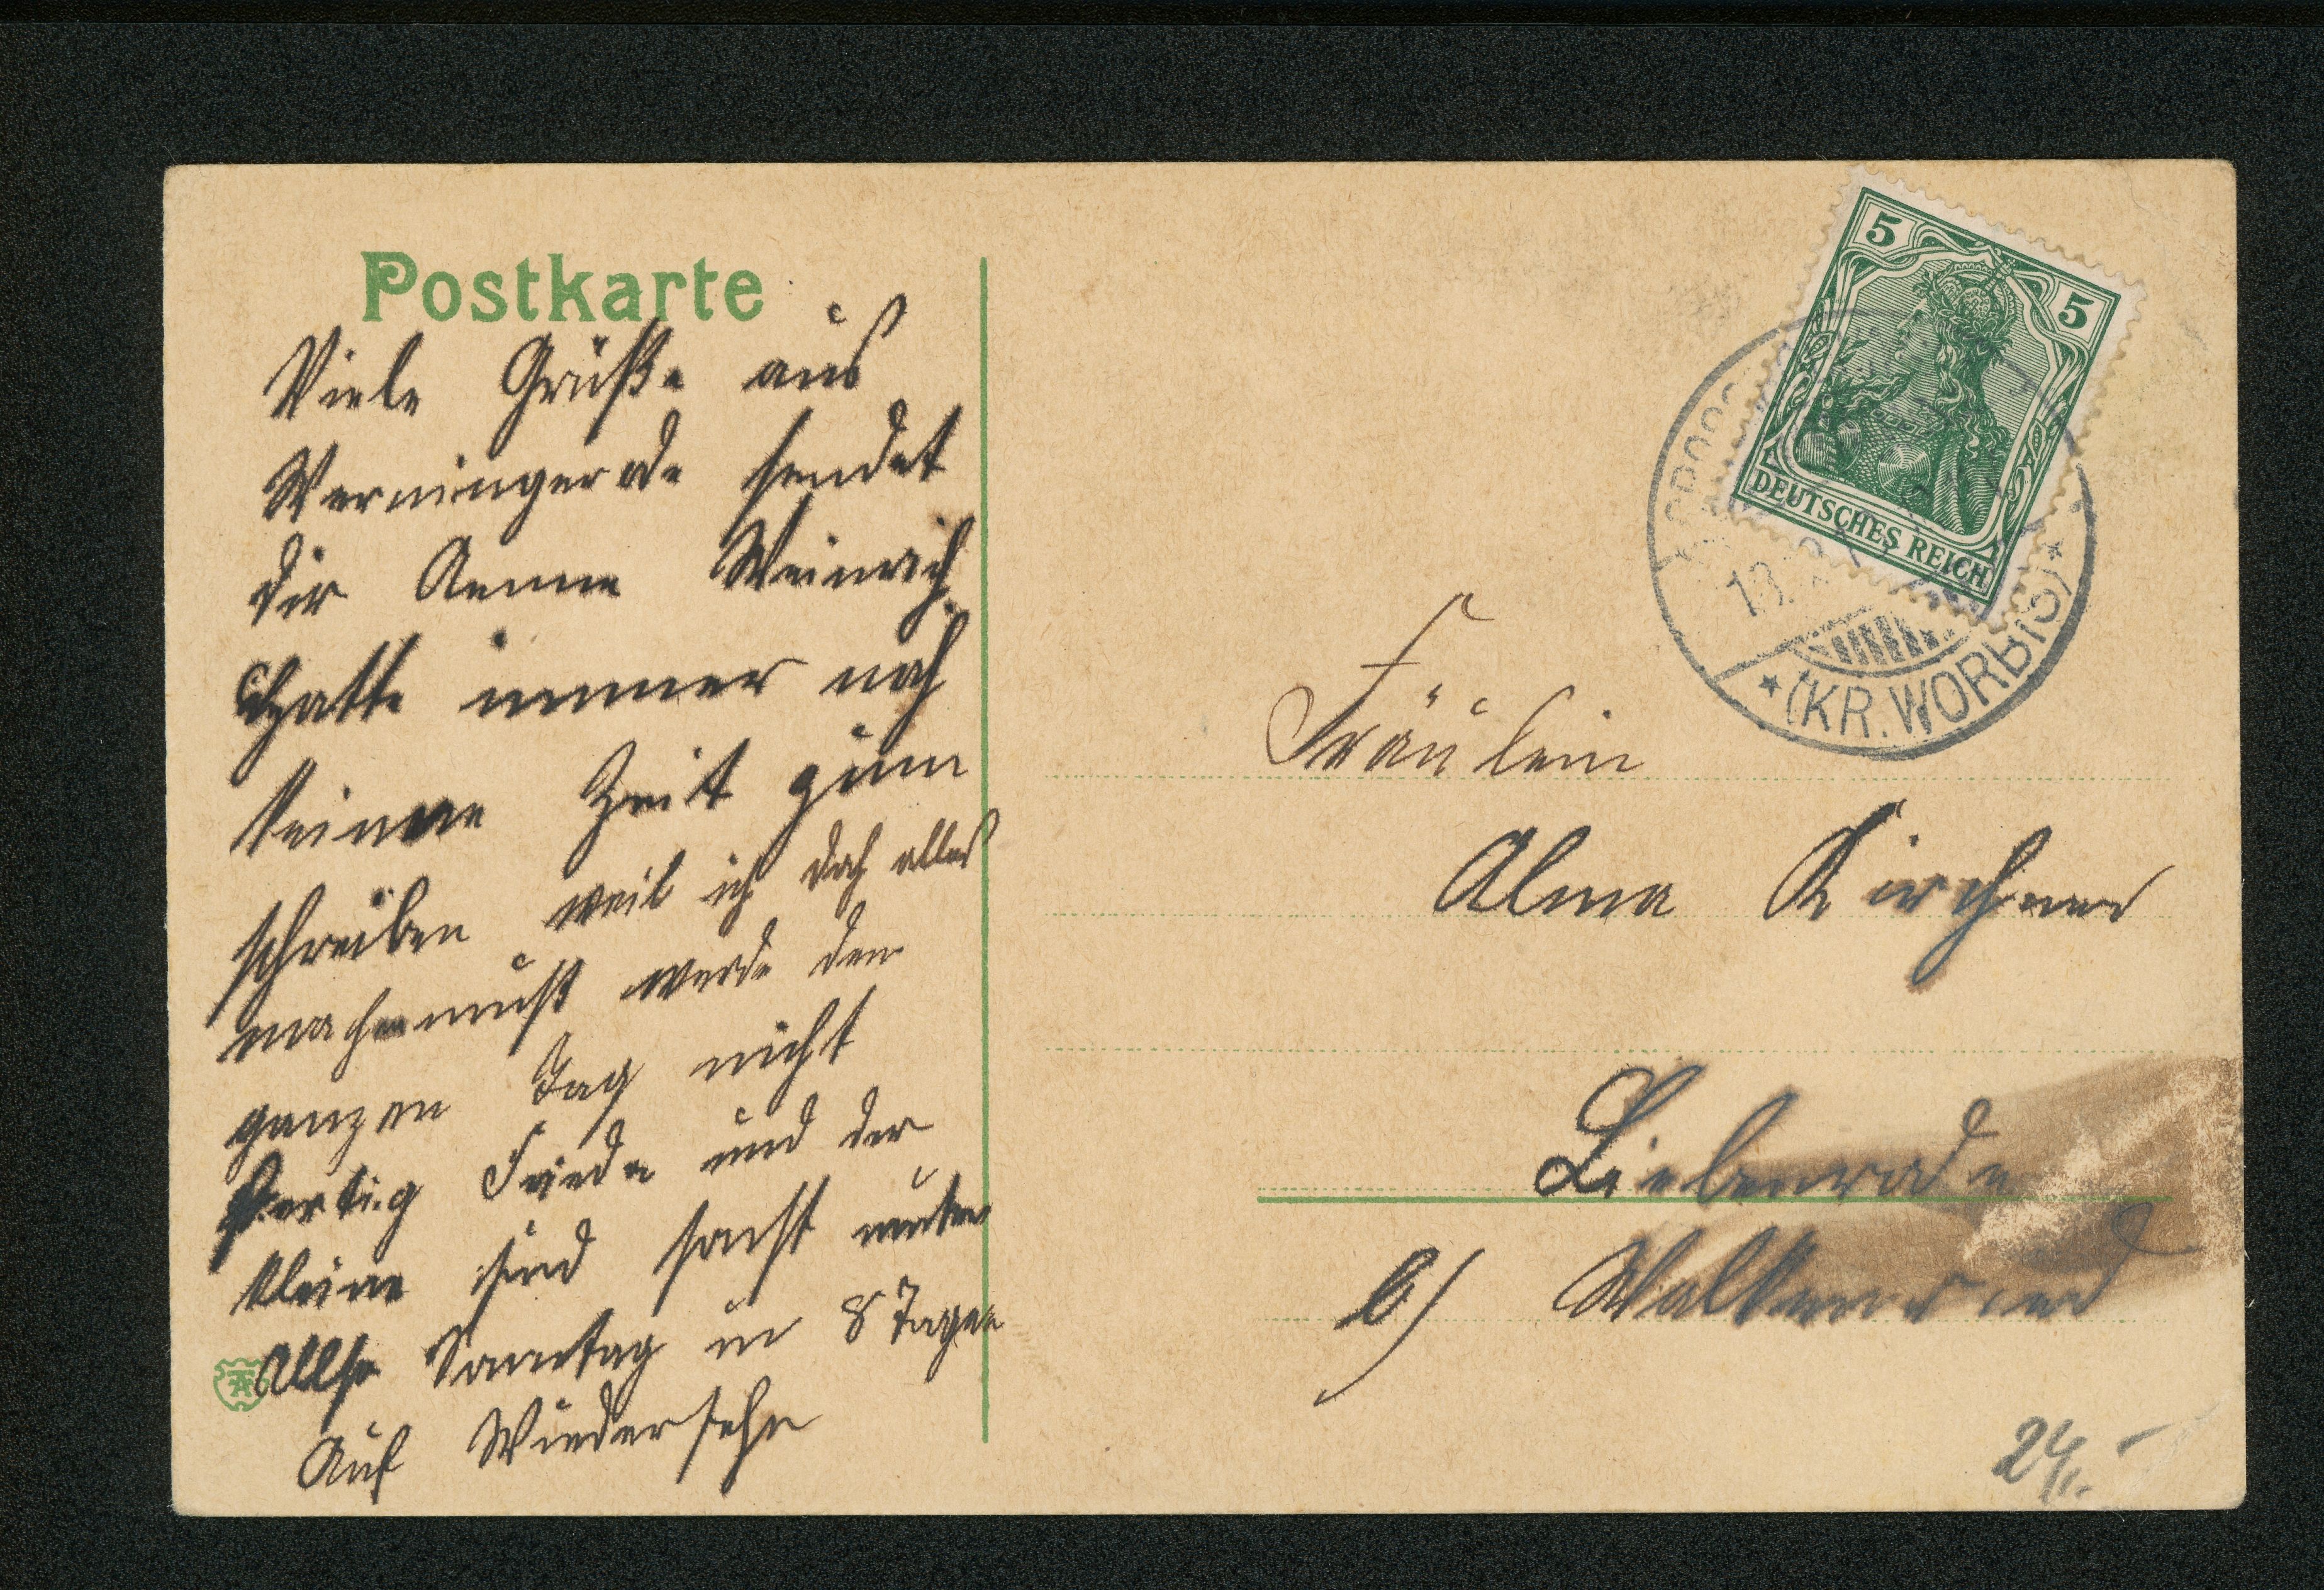 Postkarte
Viele Grüße aus
Werningerode sendet
dir Aenne Weinrich
Hatte immer noch
keine Zeit zum
schreiben weil ich doch alles
machen muß werde den
ganzen Tag nicht
fertig Frieda und der
kleine sind sonst munter
Allso Sonntag in 8 Tagen
Auf Wiedersehn
5
5
DEUTSCHES REICH
(KR. WORBIS)
Fräulein
Alma Kirchner
Liebenrode
b/ Walkenried
24,-